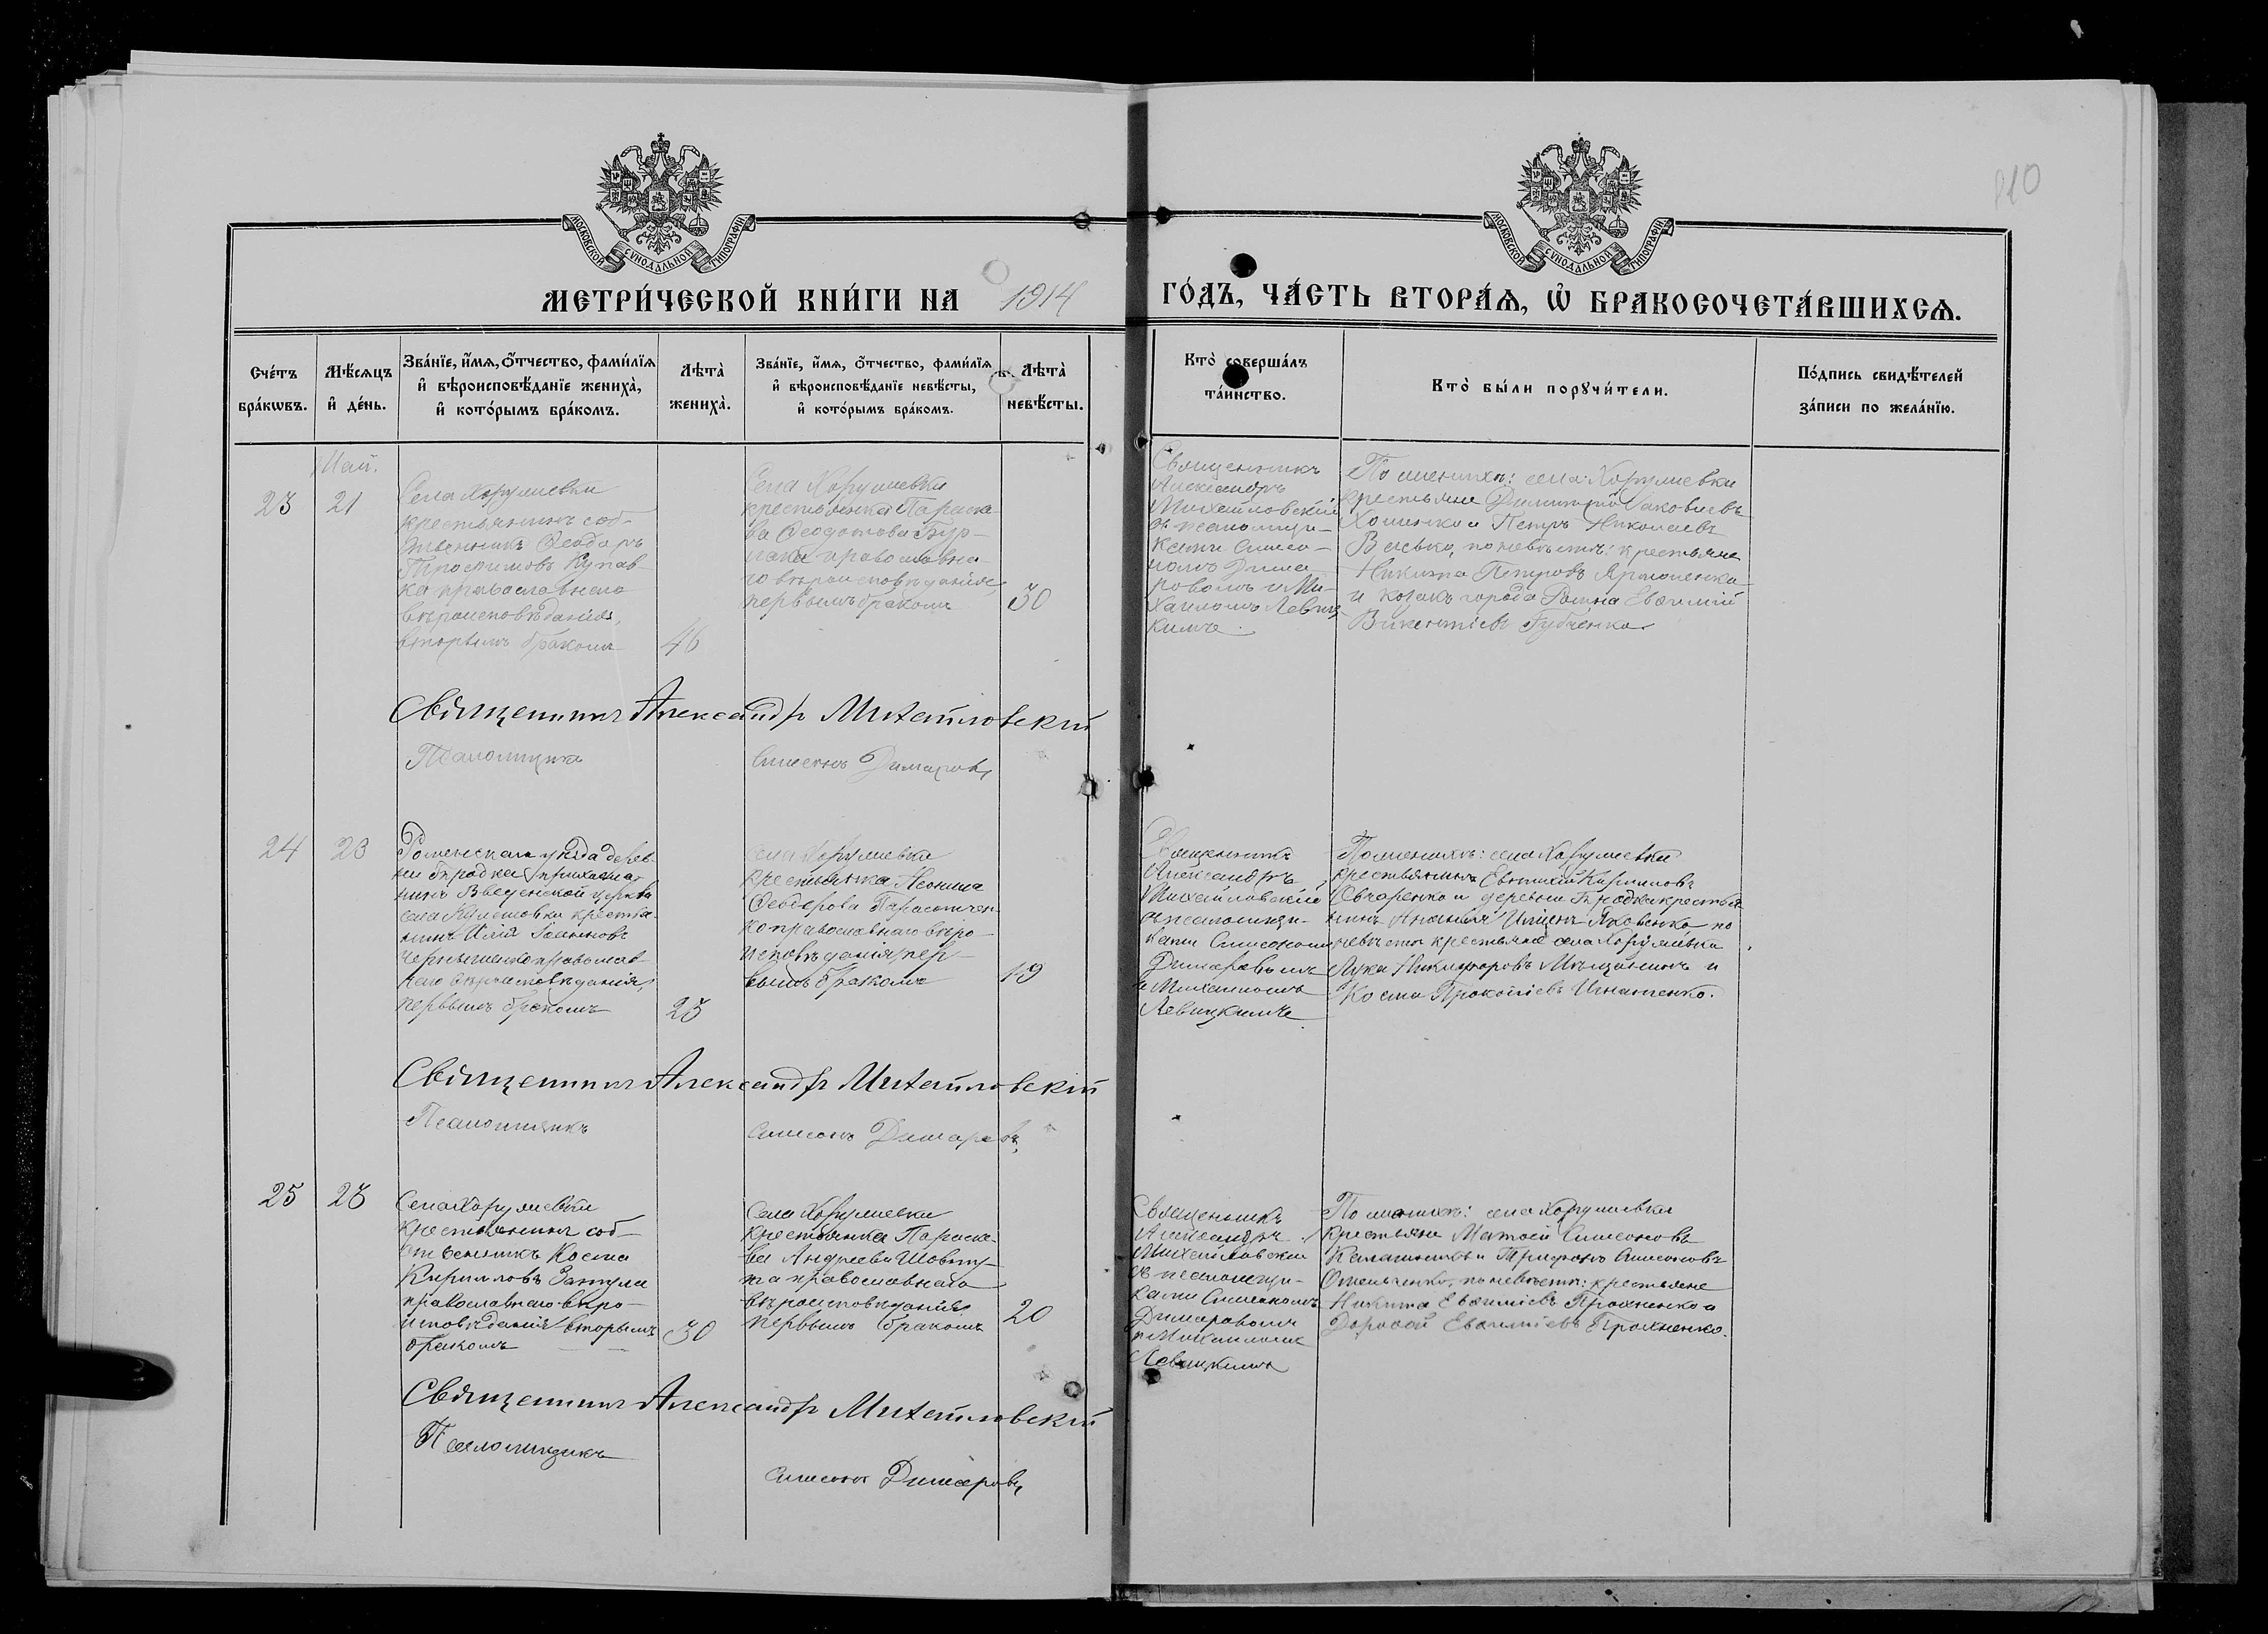 МОСКОВСКОЙ СѴНОДАЛЬНОЙ ТИПОГРАФІИ
МОСКОВСКОЙ СѴНОДАЛЬНОЙ ТИПОГРАФІИ
210
МЕТРИ́ЧЕСКОЙ КНИ́ГИ НА 1914 ГО́ДЪ, ЧА́СТЬ ВТОРА́Ѧ, Ѡ҆ БРАКОСОЧЕТА́ВШИХСѦ.
Сче́тъ
бра́кѡвъ.
Мѣ́сѧцъ
и҆ де́нь.
Зва́нїе, и҆́мѧ, ѻ҆́тчество, фами́лїѧ
и҆ вѣроисповѣ́данїе жениха̀,
и҆ кото́рымъ бра́комъ.
Лѣта̀
жениха̀.
Зва́нїе, и҆́мѧ, ѻ҆́тчество, фами́лїѧ
и҆ вѣроисповѣ́данїе невѣ́сты,
и҆ кото́рымъ бра́комъ.
Лѣта̀
невѣ́сты.
Кто̀ соверша́лъ
та́инство.
Кто̀ бы́ли порꙋчи́тели.
По́дпись свидѣ́телей
за́писи по жела́нїю.
Май.
23
21
Села Хоружевки
крестьянинъ соб-
ственникъ Ѳеодоръ
Трофимовъ
православнаго
вѣроисповѣданія,
вторымъ бракомъ
46
Села Хоружевки
крестьянка Параске
ва Ѳеодотова
православна
го вѣроисповѣданія,
первымъ бракомъ
30
Священникъ
Александръ
Михайловскій
съ псаломщи-
ками Симео-
номъ Дима
ровымъ и Ми-
хаиломъ Левиц
кимъ.
По женихѣ: села Хоружевки
крестьяне Димитрій Іаковлевъ
Хоменко и Петръ Николаевъ
по невѣстѣ: крестьяне
Никита Петровъ Ярмоленко
и козакъ города Ромна Евѳимій
Викентіевъ Губченко.
Священникъ Александръ Михайловскій
Псаломщикъ Симеонъ Димаровъ
24
23
Роменскаго уѣзда дерев
ни Бродка прихожа-
нинъ Введенской церкви
села крестья-
нинъ Илія Іоанновъ
православ-
наго вѣроисповѣданія,
первымъ бракомъ
25
села Хоружевки
крестьянка Леонила
Ѳеодорова
ко православнаго вѣро-
исповѣданія, пер-
вымъ бракомъ
19
Священникъ
Александръ
Михайловскій
съ псаломщи-
ками Симеономъ
Димаровымъ
и Михаиломъ
Левицкимъ
По женихѣ: села Хоружевки
крестьянинъ Евтихій Кирилловъ
Овчаренко и деревни Бродка крестья
нинъ Ананія Яковенко, по
невѣстѣ крестьяне села Хоружевки
Лука Никифоровъ Мѣщанинъ и
Косма Прокопіевъ Игнатенко.
Священникъ Александръ Михайловскій
Псаломщикъ Симеонъ Димаровъ
25
28
Села Хоружевки
крестьянинъ соб-
ственникъ Косма
Кирилловъ Затула
православнаго вѣро-
исповѣданія, вторымъ
бракомъ
30
Села Хоружевки
крестьянка Параске-
ва Андреева
православнаго
вѣроисповѣданія,
первымъ бракомъ
20
Священникъ
Александръ
Михайловскій
съ псаломщи-
ками Симеономъ
Димаровымъ
и Михаиломъ
Левицкимъ
По женихѣ: села Хоружевки
крестьяне Матѳей Симеоновъ
Калашникъ и Трифонъ Симеоновъ
Омельченко, по невѣстѣ: крестьяне
Никита Евѳиміевъ Прохненко и
Дороѳей Евѳиміевъ Прохненко.
Священникъ Александръ Михайловскій
Псаломщикъ
Симеонъ Димаровъ